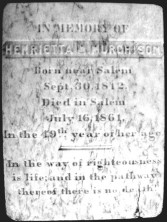 IN MEMORY OF
HENRIETTA M. MURCHISON
Born near Salem
Sept. 30, 1812
Died in Salem
July 16, 1861
In the 49th year of her age
In the way of righteousness
is life; and in the pathway
thereof there is no death